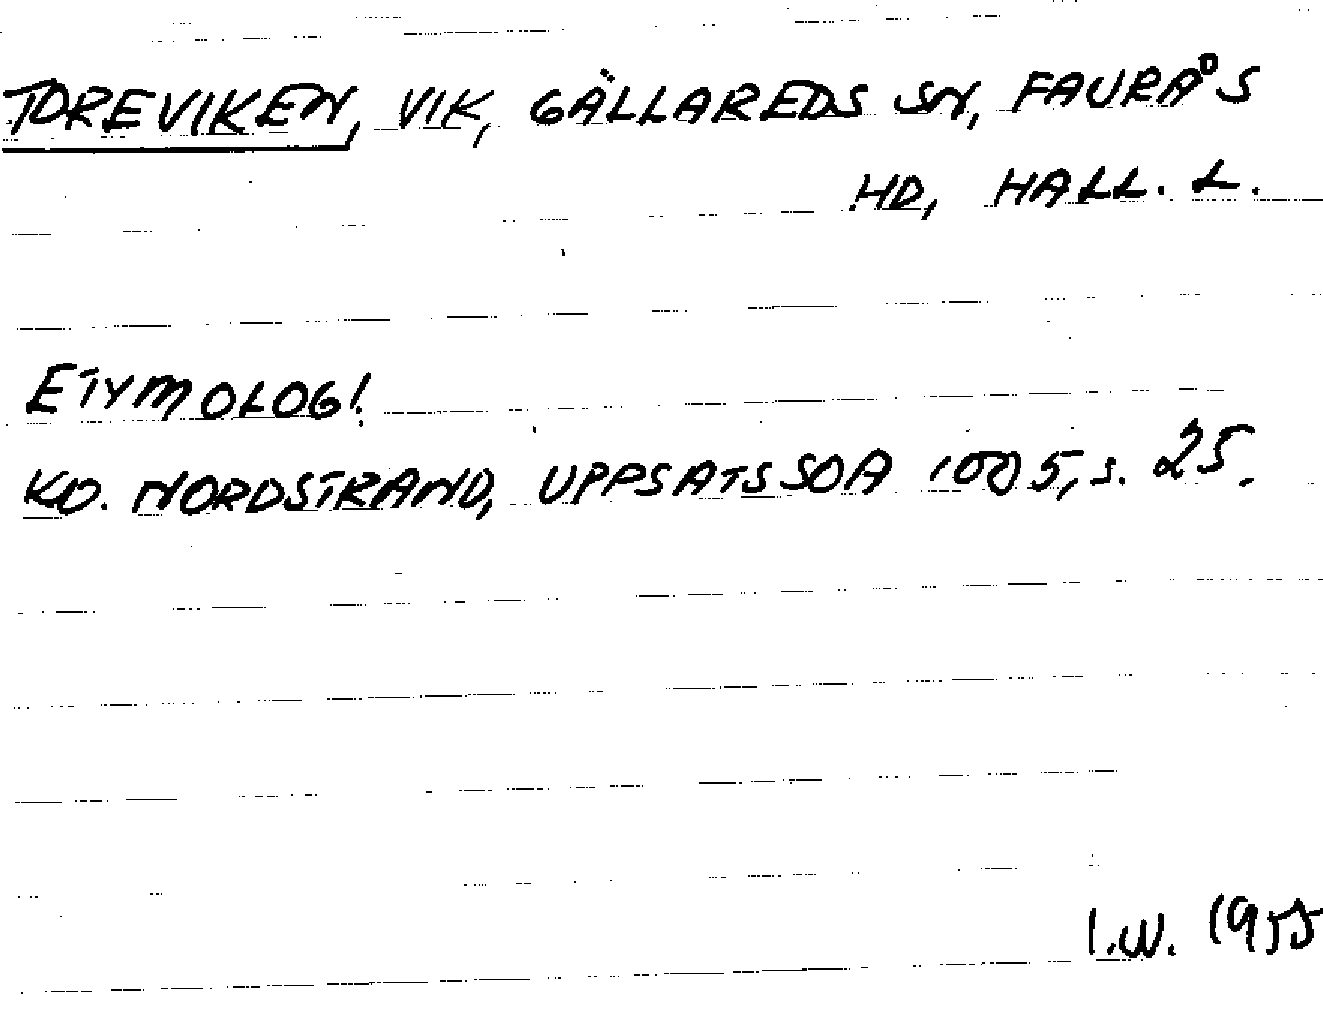 TOREVIKEN, VIK, GÄLLAREDS SN, FAURÅS
HD, HALL. L.
ETYMOLOGI.
KO. NORDSTRAND, UPPSATS SOA 1005, s. 25.
I.W. 1955